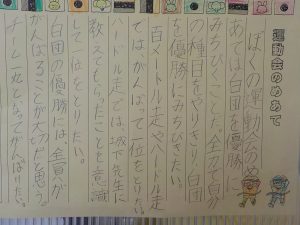 運動会のめあて
ぼくの運動会のめ
あては白団を優勝に
みちびくことだ。全力で自分
の種目をやりきり、白団
を優勝にみちびきたい。
百メートル走やハードル走
ではがんばって一位をとりたい。
ハードル走では、城下先生に
教えてもらったことを意識
して一位をとりたい。
白団の優勝には全員が
がんばることが大切だと思う。
チーム一丸となってがんばりたい。